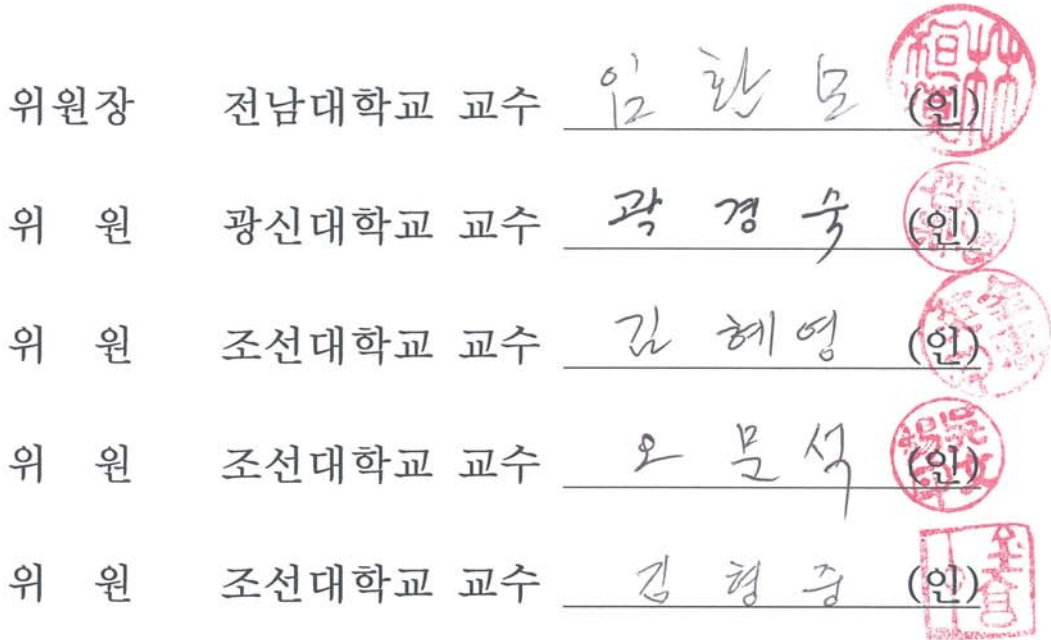 위원장 전남대학교 교수 임환모 (인)
위 원 광신대학교 교수 곽경숙 (인)
위 원 조선대학교 교수 김혜영 (인)
위 원 조선대학교 교수 오문석 (인)
위 원 조선대학교 교수 김형중 (인)